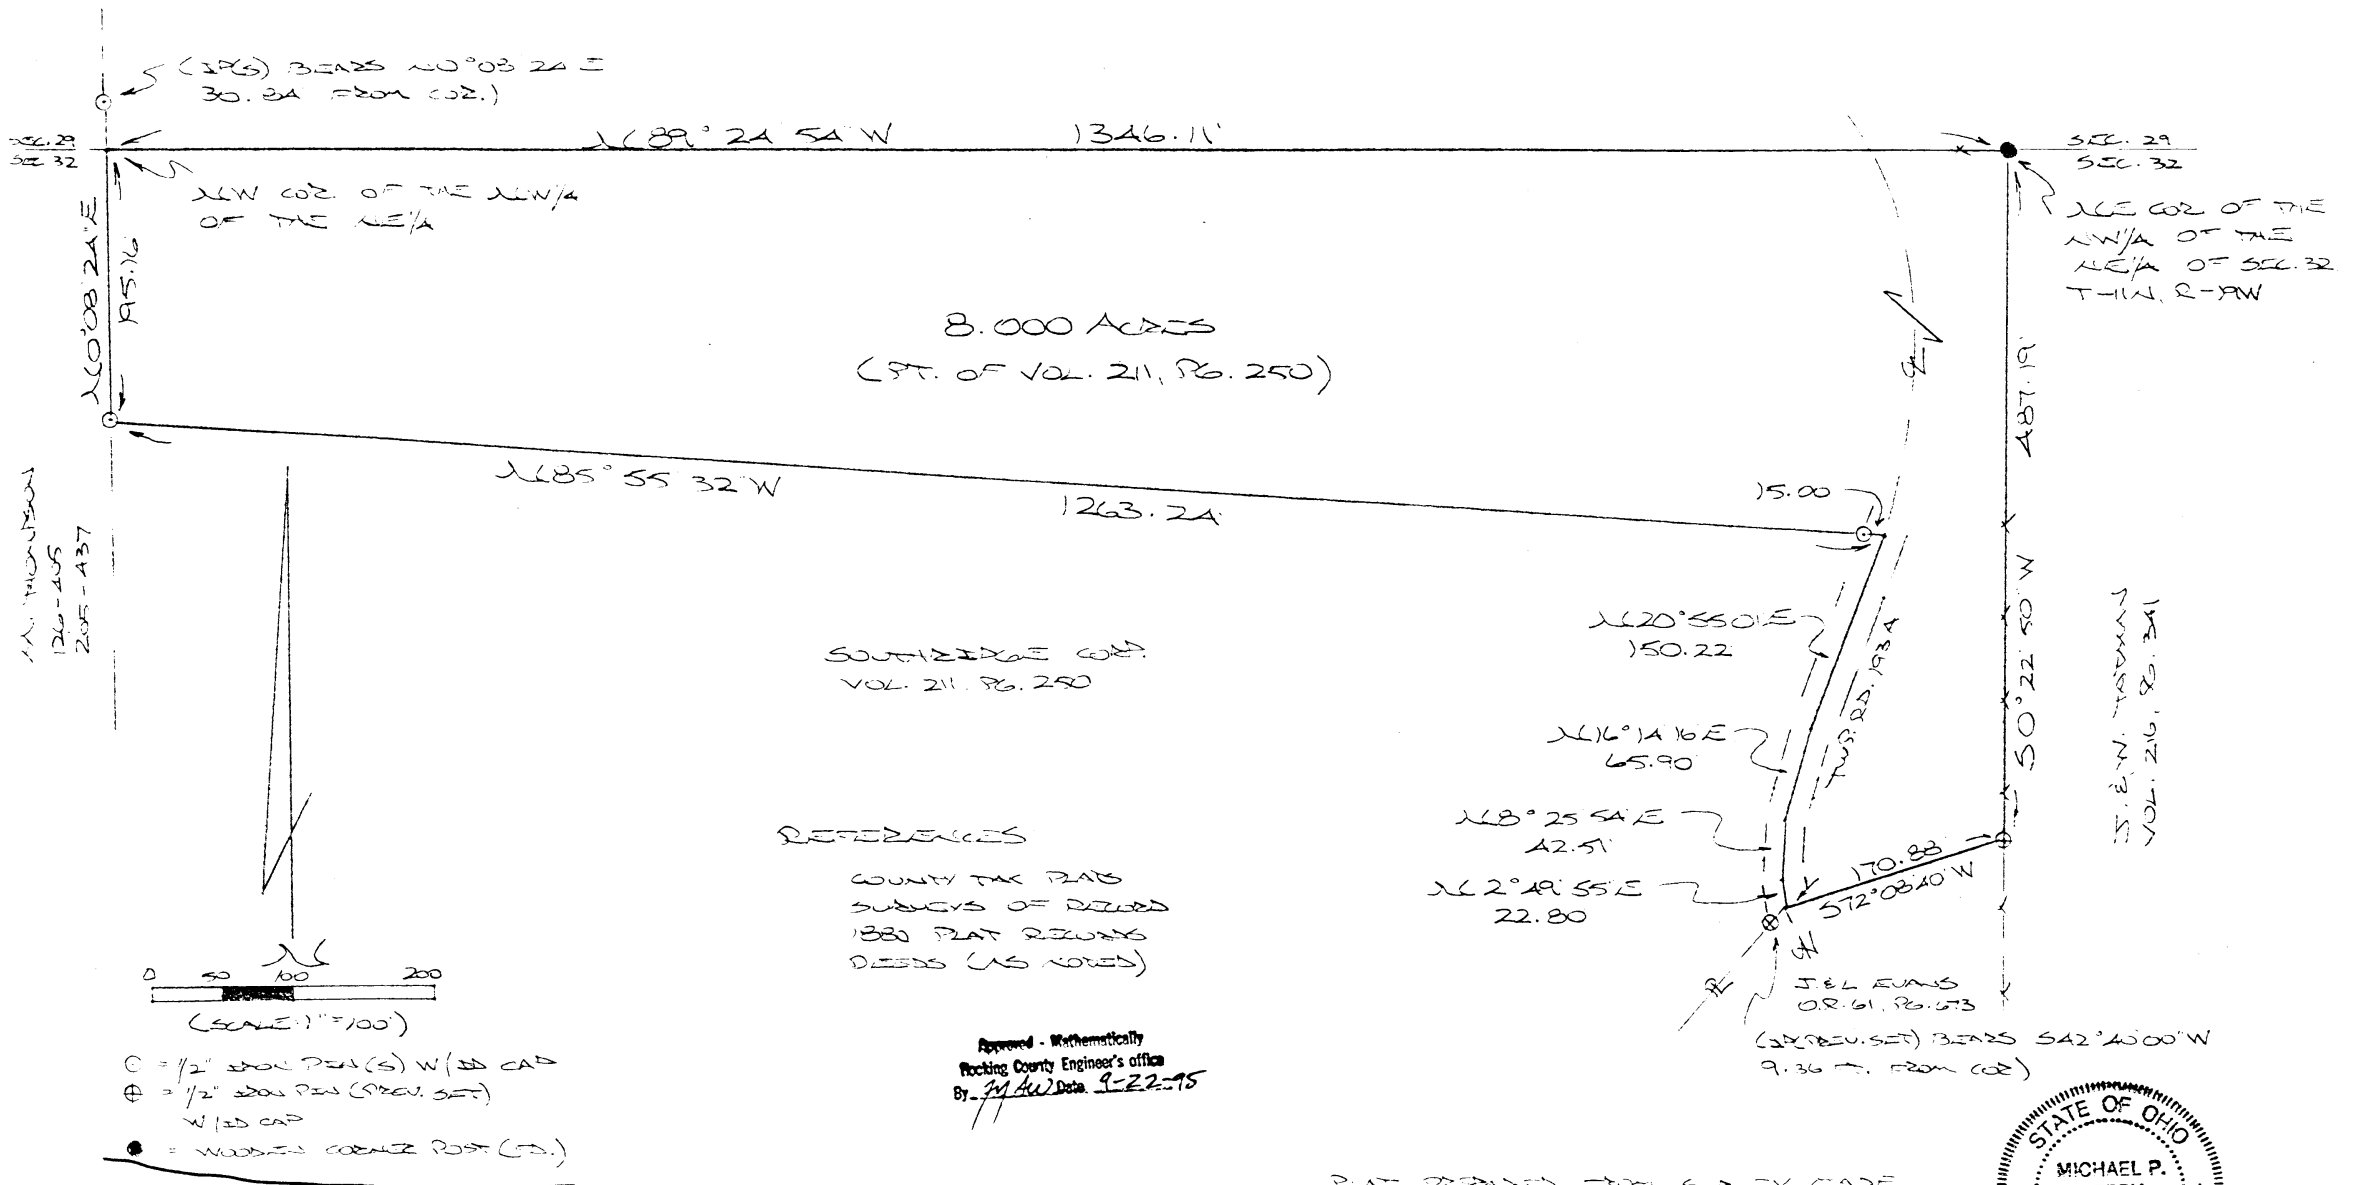 (IP(S) BEARS N0°08 24 E
30.84 FROM COR.)
SEC. 29
SEC 32
N89° 24 54 W 1346.11'
SEC. 29
SEC. 32
NW COR. OF THE NW/4
OF THE NE/4
NE COR OF THE
NW/4 OF THE
NE/4 OF SEC. 32
T-11N, R-19W
N0°08 24" E
195.16
8.000 ACRES
(PT. OF VOL. 211, PG. 250)
487.19'
S0°22 50 W
N85° 55 32 W
1263.24'
15.00
M. THOMPSON
205-437
N20°55 01 E
150.22
TWP. RD. 193A
SOUTHRIDGE CORP.
VOL. 211. PG. 250
J. & W.
VOL. 216, PG. 341
N16°14 16 E
65.90
N8° 25 54 E
42.51'
N 2° 49 55 E
22.80
170.88
S72°08 40 W
REFERENCES
COUNTY TAX PLATS
SURVEYS OF RECORD
1880 PLAT RECORDS
DEEDS (AS NOTED)
N
0 50 100 200
(SCALE: 1"=100')
J. & L EVANS
O.R. 61, PG. 673
(IP(PREV. SET) BEARS S42°40'00" W
9.36 FT. FROM COR)
= 1/2" IRON PIN(S) W/ID CAP
= 1/2" IRON PIN (PREV. SET)
W/ID CAP
= WOODEN CORNER POST (FD.)
Approved - Mathematically
Hocking County Engineer's office
By Date 9-22-95
STATE OF OHIO
MICHAEL P.